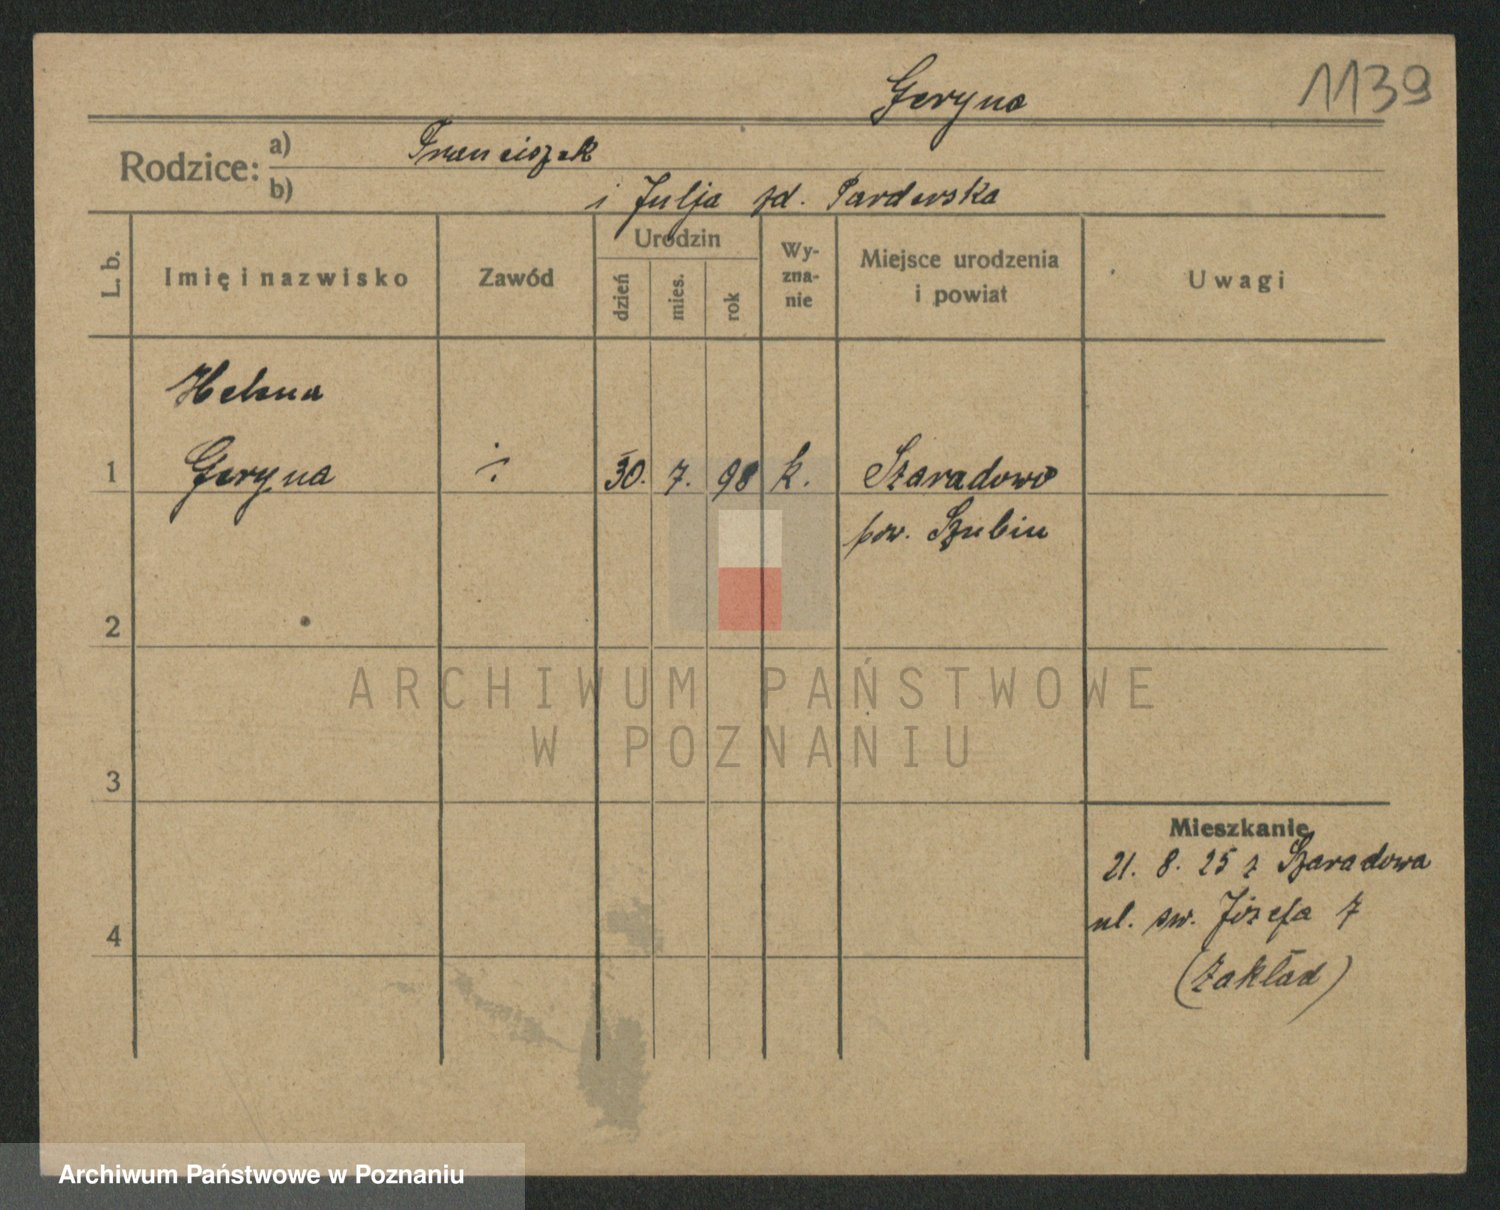 Geryna
1139
Rodzice: a) Franciszek
b) i Julja zd. Parderska
L. b.
Imię i nazwisko
Zawód
Urodzin
dzień
mies.
rok
Wy-
zna-
nie
Miejsce urodzenia
i powiat
Uwagi
Helena
1 Geryna ·/. 30. 7. 98 k. Szaradowo
pow. Szubin
2
ARCHIWUM PAŃSTWOWE
W POZNANIU
3
Mieszkanie
21. 8. 25 z Szaradowa
ul. św. Józefa 7
4
(Zakład)
Archiwum Państwowe w Poznaniu